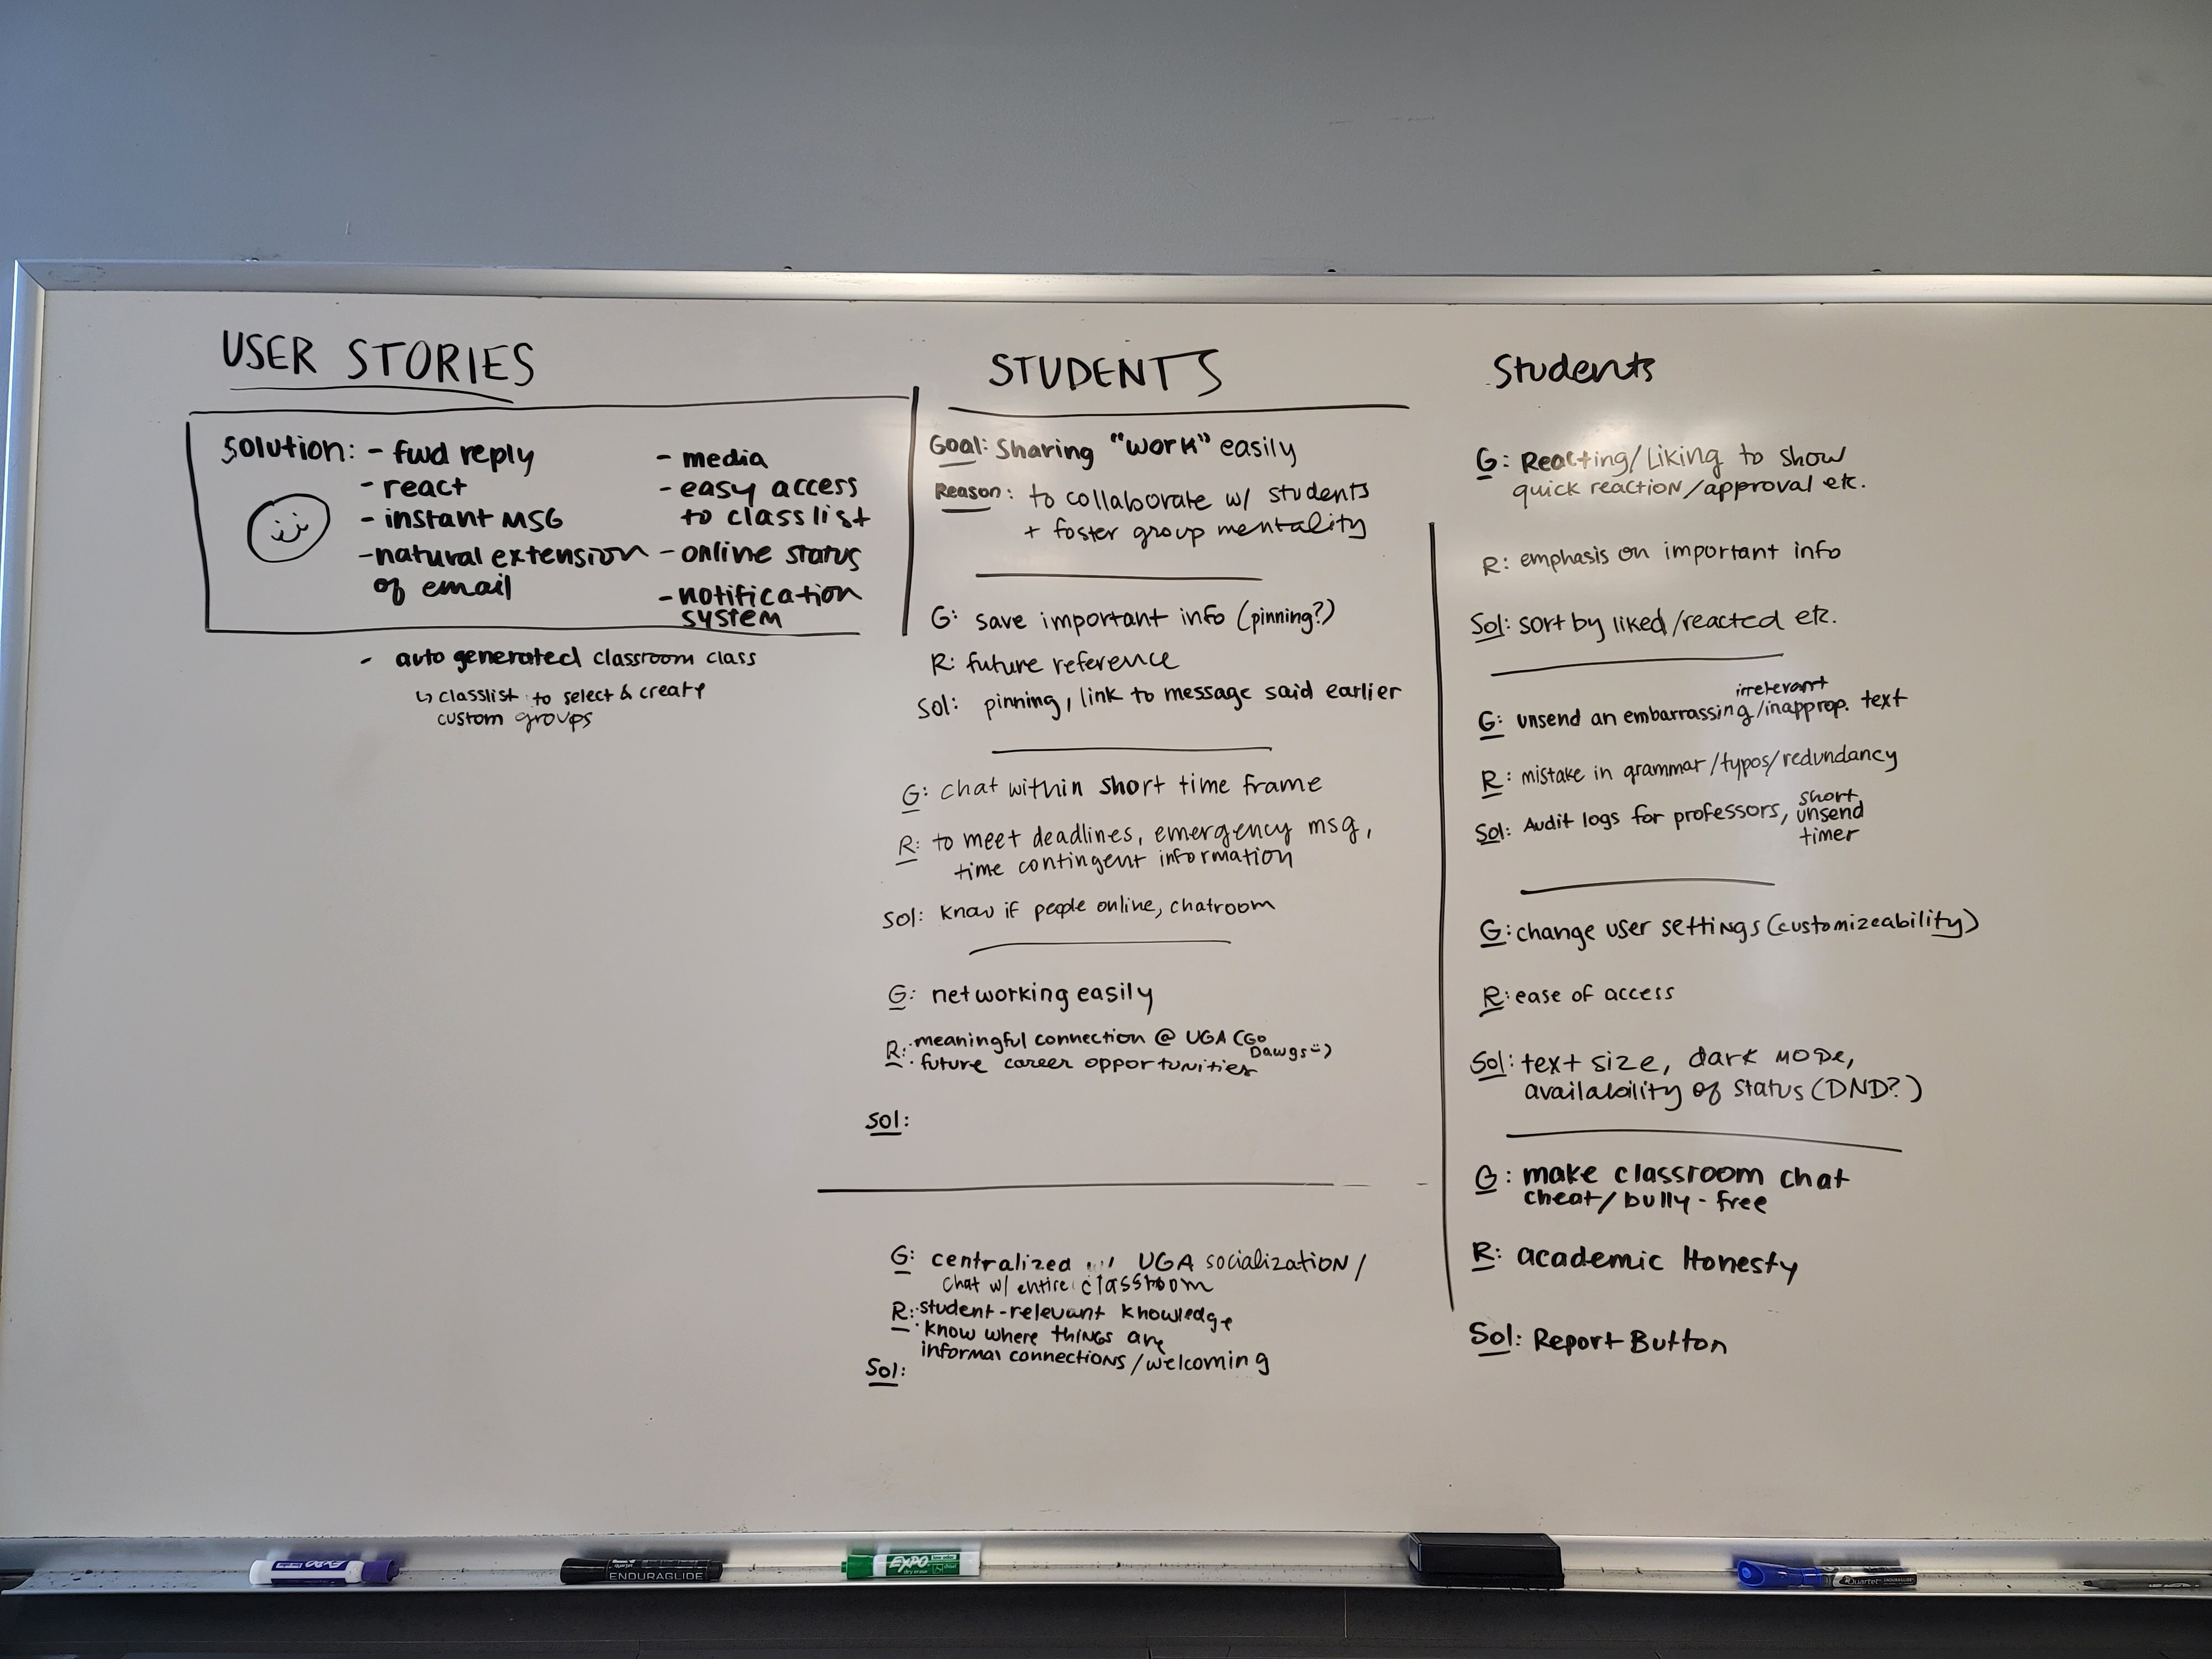 USER STORIES
Solution: - fwd reply
- react
- instant MSG
- natural extension
of email
- media
- easy access
to classlist
- online status
- notification
system
- auto generated classroom class
↳ classlist to select & create
custom groups
STUDENTS
Goal: Sharing "work" easily
Reason: to collaborate w/ students
+ foster group mentality
G: save important info (pinning?)
R: future reference
Sol: pinning, link to message said earlier
G: chat within short time frame
R: to meet deadlines, emergency msg,
time contingent information
Sol: know if people online, chatroom
G: networking easily
R: · meaningful connection @ UGA (Go
Dawgs :)
· future career opportunities
Sol:
G: centralized UGA socialization /
chat w/ entire classroom
R: · student-relevant knowledge
· know where things are
informal connections / welcoming
Sol:
Students
G: Reacting/Liking to show
quick reaction/approval etc.
R: emphasis on important info
Sol: sort by liked/reacted etc.
irrelevant
G: unsend an embarrassing/inapprop. text
R: mistake in grammar/typos/redundancy
Sol: Audit logs for professors, short
unsend
timer
G: change user settings (customizeability)
R: ease of access
Sol: text size, dark mode,
availability of status (DND?)
G: make classroom chat
cheat/bully-free
R: academic Honesty
Sol: Report Button
EXPO
Quartet
ENDURAGLIDE
EXPO
dry erase
Quartet